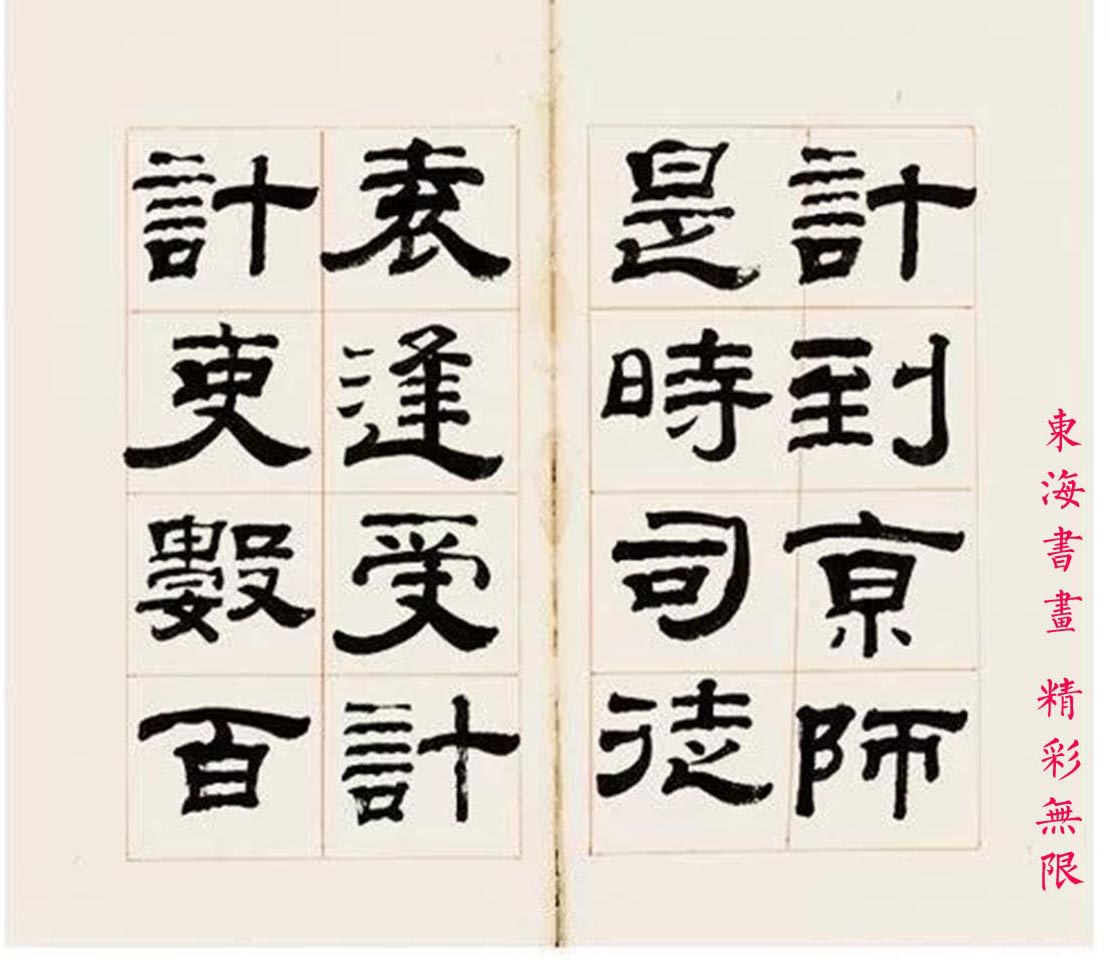 計到京師
是時司徒
袁逢受計
計吏數百
東海書畫 精彩無限